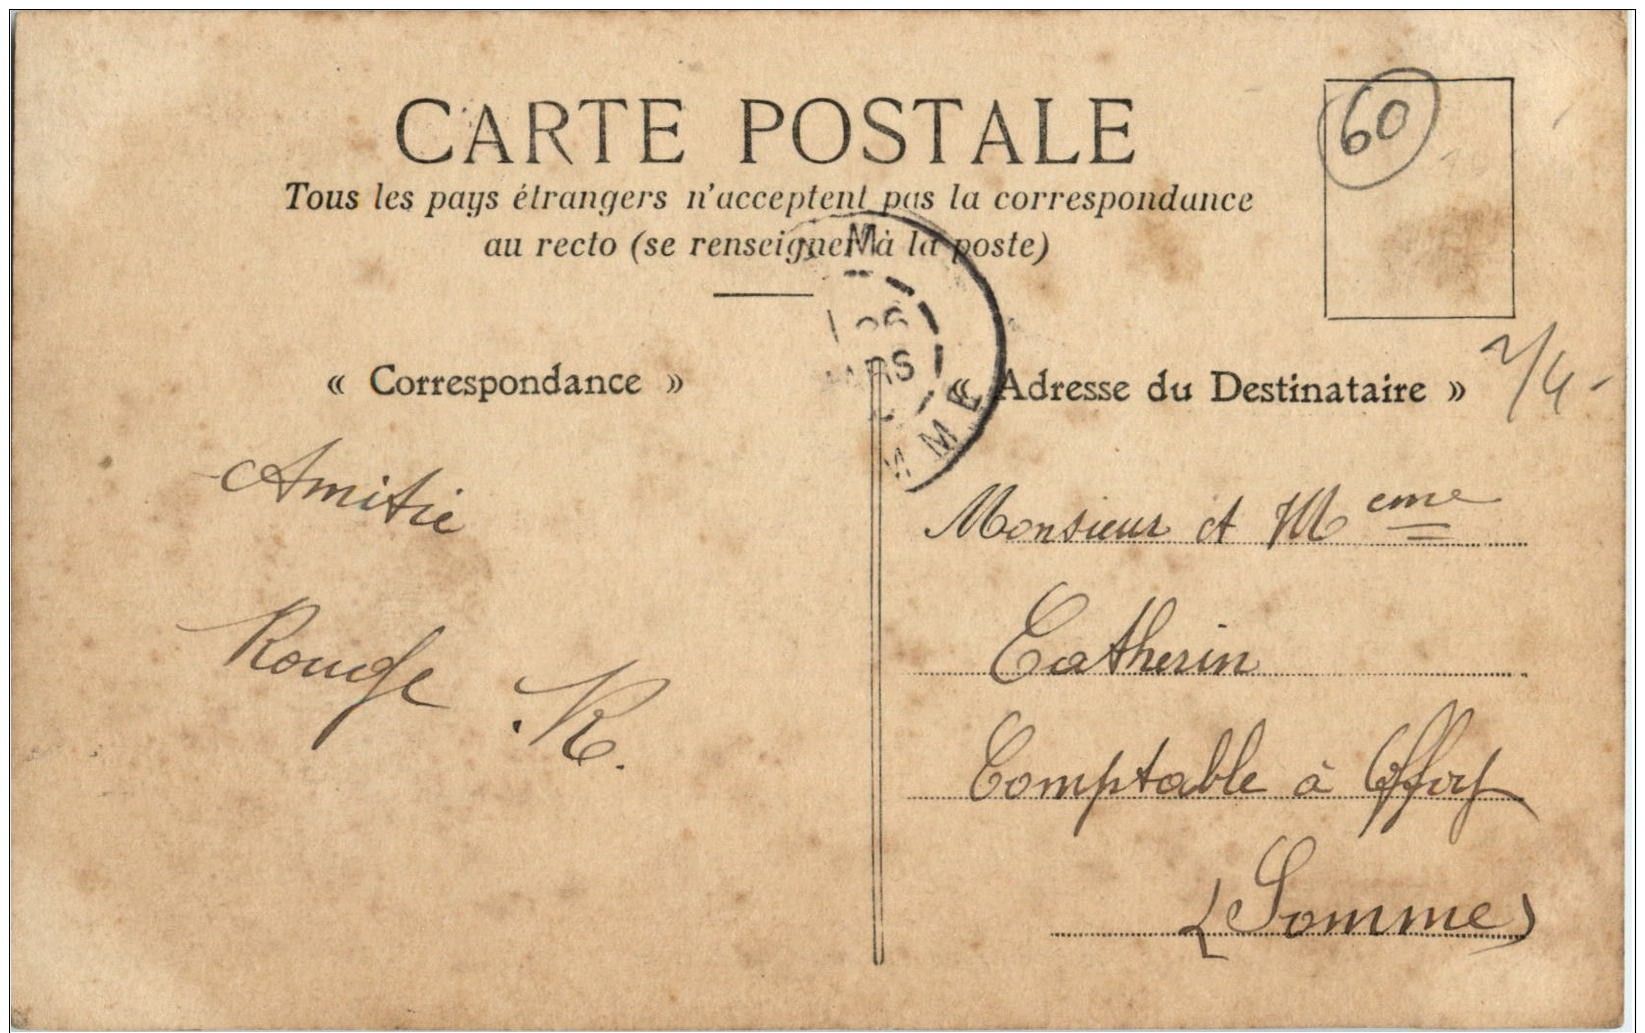 CARTE POSTALE
60
Tous les pays étrangers n'acceptent pas la correspondance
au recto (se renseigner à la poste)
« Correspondance »
« Adresse du Destinataire »
Amitie
Rouge R.
Monsieur et Meme
Catherin
Comptable à Offoy
(Somme)